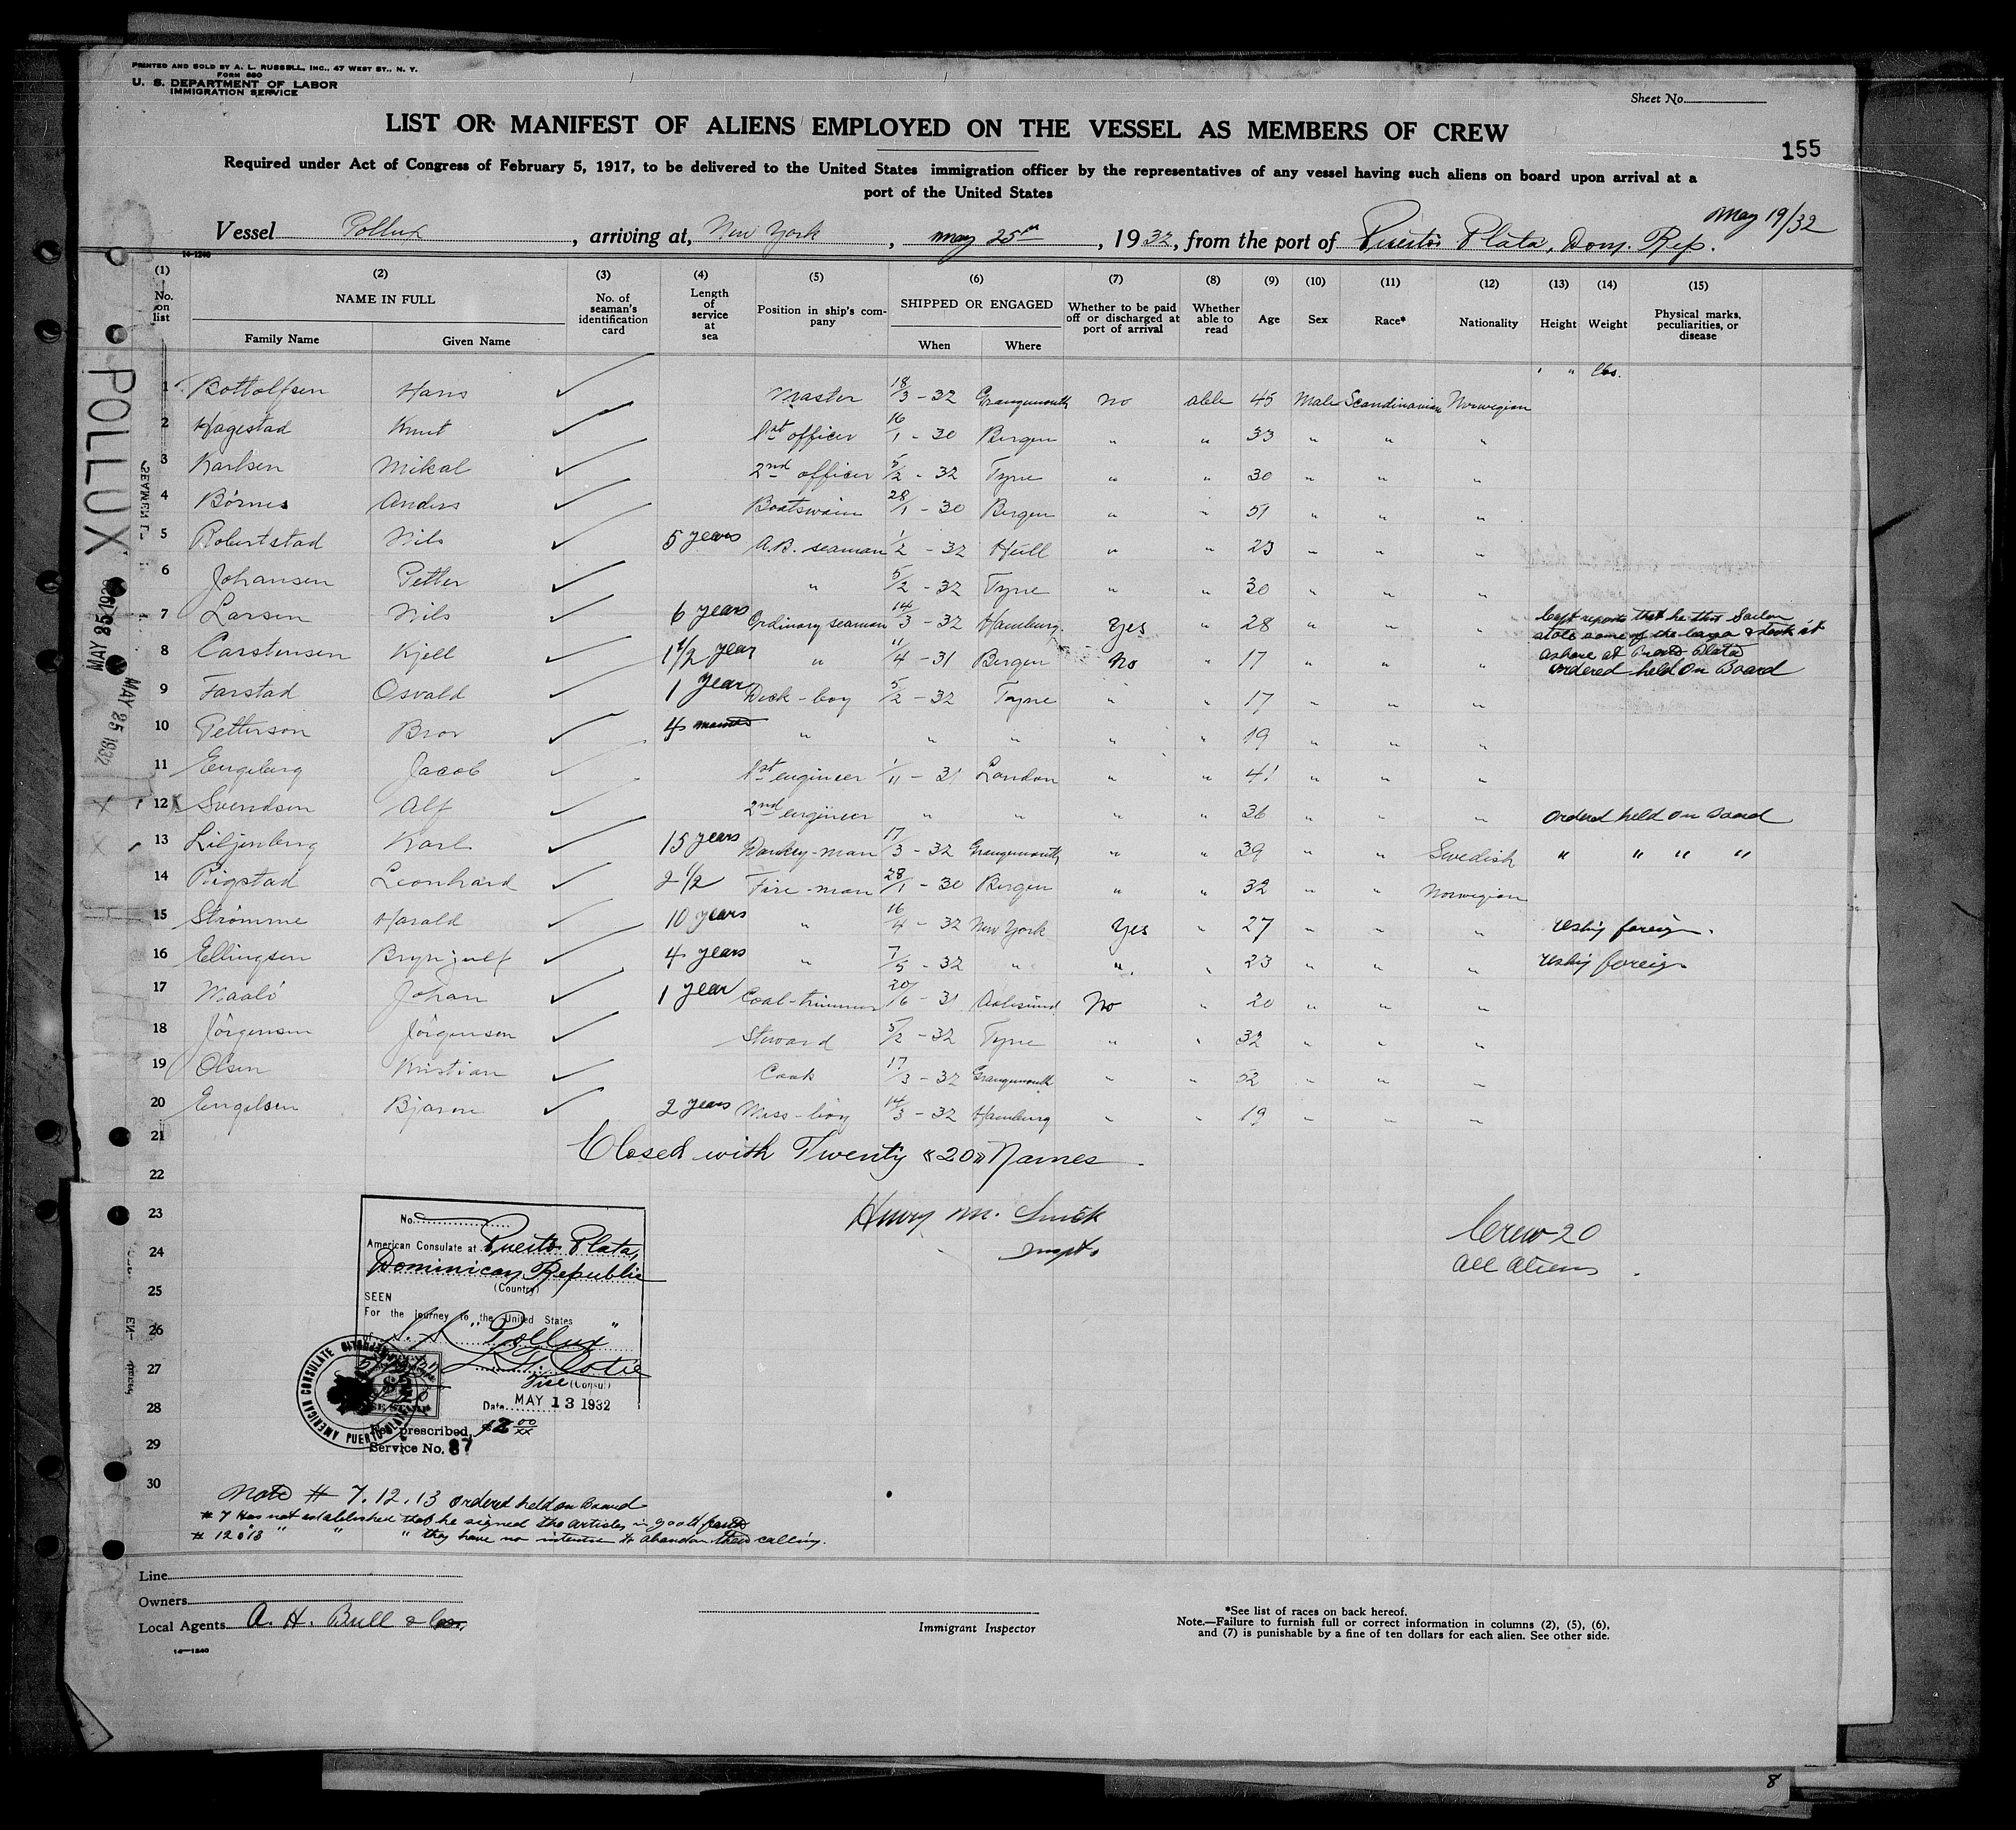 PRINTED AND SOLD BY A. L. RUSSELL, INC., 47 WEST ST., N. Y.
FORM 680
U. S. DEPARTMENT OF LABOR
IMMIGRATION SERVICE
Sheet No.
LIST OR MANIFEST OF ALIENS EMPLOYED ON THE VESSEL AS MEMBERS OF CREW
155
Required under Act of Congress of February 5, 1917, to be delivered to the United States immigration officer by the representatives of any vessel having such aliens on board upon arrival at a
port of the United States
May 19/32
Vessel Pollux, arriving at, New York, May 25th, 1932, from the port of Puerto Plata, Dom. Rep.
14-1240
(1) (2) (3) (4) (5) (6) (7) (8) (9) (10) (11) (12) (13) (14) (15)
No. on list NAME IN FULL Family Name Given Name No. of seaman's identification card Length of service at sea Position in ship's company SHIPPED OR ENGAGED When Where Whether to be paid off or discharged at port of arrival Whether able to read Age Sex Race* Nationality Height Weight Physical marks, peculiarities, or disease
' " lbs.
1 Bottolfsen Hans ✓ Master 18/3 - 32 Grangemouth no able 45 Male Scandinavian Norwegian
2 Hagestad Knut ✓ 1st officer 16/1 - 30 Bergen " " 33 " " "
3 Karlsen Mikal ✓ 2nd officer 5/2 - 32 Tyne " " 30 " " "
4 Börnes Anders ✓ Boatswain 28/1 - 30 Bergen " " 51 " " "
5 Robertstad Nils ✓ 5 years A.B. seaman 1/2 - 32 Hull " " 23 " " "
6 Johansen Petter ✓ " 5/2 - 32 Tyne " " 30 " " "
7 Larsen Nils ✓ 6 years Ordinary seaman 14/3 - 32 Hamburg. Yes " 28 " " " Capt reports that he this Sailor
stole some of the cargo & took it
8 Carstensen Kjell ✓ 1 1/2 year " 11/4 - 31 Bergen No " 17 " " " ashore at Plata
ordered held on Board
9 Farstad Osvald ✓ 1 year Deck-boy 5/2 - 32 Tyne " " 17 " " "
10 Petterson Bror ✓ 4 months " " " " " 19 " " "
11 Engeberg Jacob ✓ 1st engineer 1/11 - 31 London " " 41 " " "
12 Svendsen Alf ✓ 2nd engineer " " " " 36 " " " ordered held on Board
13 Liljenberg Karl ✓ 15 years Donkey-man 17/3 - 32 Grangemouth " " 39 " " Swedish " " " "
14 Rigstad Leonhard ✓ 2 1/2 Fire-man 28/1 - 30 Bergen " " 32 " " Norwegian
15 Strömme Harald ✓ 10 years " 16/4 - 32 New York Yes " 27 " " " reship foreign.
16 Ellingsen Brynjulf ✓ 4 years " 7/5 - 32 " " " 23 " " " reship foreign
17 Maalö Johan ✓ 1 year Coal-trimmer 20/6 - 31 Aalesund No " 20 " " "
18 Jörgensen Jörgensen ✓ Steward 5/2 - 32 Tyne " " 32 " " "
19 Olsen Kristian ✓ Cook 17/3 - 32 Grangemouth " " 52 " " "
20 Engelsen Bjarne ✓ 2 years Mess-boy 14/3 - 32 Hamburg " " 19 " " "
21 Closed with Twenty «20» Names
22
23 Henry M. Smith
24 Insptr
Crew 20
All Aliens
25
26
27
28
29
30
No.
American Consulate at Puerto Plata,
Dominican Republic
(Country)
SEEN
For the journey to the United States
of S.S. "Pollux"
Vice (Consul)
Date MAY 13 1932
Fee prescribed, $2 00/xx
Service No. 87
AMERICAN CONSULATE PUERTO PLATA
POLLUX
MAY 25 1932
MAY 25 1932
Note # 7. 12. 13 ordered held on Board
# 7 Has not established that he signed the articles in good faith
# 12 & 13 " " " they have no intention to abandon their calling.
Line
Owners
Local Agents A. H. Bull & Co.
Immigrant Inspector
*See list of races on back hereof.
Note.—Failure to furnish full or correct information in columns (2), (5), (6),
and (7) is punishable by a fine of ten dollars for each alien. See other side.
14—1240
8